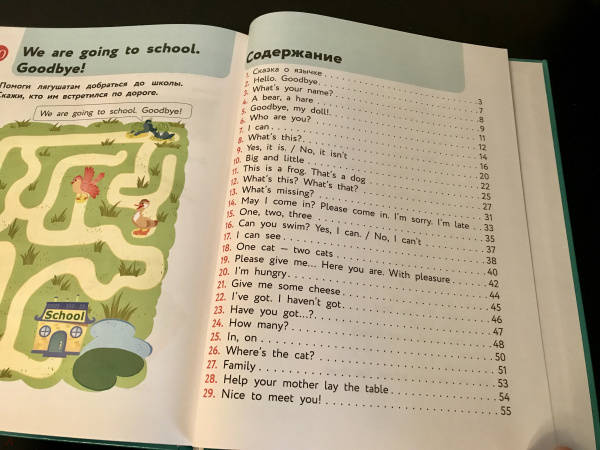 We are going to school.
Goodbye!
Помоги лягушатам добраться до школы.
Скажи, кто им встретился по дороге.
We are going to school. Goodbye!
School
Содержание
1. Сказка о язычке . . . 3
2. Hello. Goodbye. . . . 7
3. What's your name? . . . 8
4. A bear, a hare . . . 9
5. Goodbye, my doll! . . . 11
6. Who are you? . . . 12
7. I can . . . 14
8. What's this? . . . 16
9. Yes, it is. / No, it isn't . . . 20
10. Big and little . . . 22
11. This is a frog. That's a dog . . . 25
12. What's this? What's that? . . . 27
13. What's missing? . . . 31
14. May I come in? Please come in. I'm sorry. I'm late . . . 33
15. One, two, three . . . 35
16. Can you swim? Yes, I can. / No, I can't . . . 37
17. I can see . . . 38
18. One cat — two cats . . . 40
19. Please give me... Here you are. With pleasure . . . 42
20. I'm hungry . . . 44
21. Give me some cheese . . . 45
22. I've got. I haven't got . . . 46
23. Have you got...? . . . 47
24. How many? . . . 48
25. In, on . . . 50
26. Where's the cat? . . . 51
27. Family . . . 53
28. Help your mother lay the table . . . 54
29. Nice to meet you! . . . 55